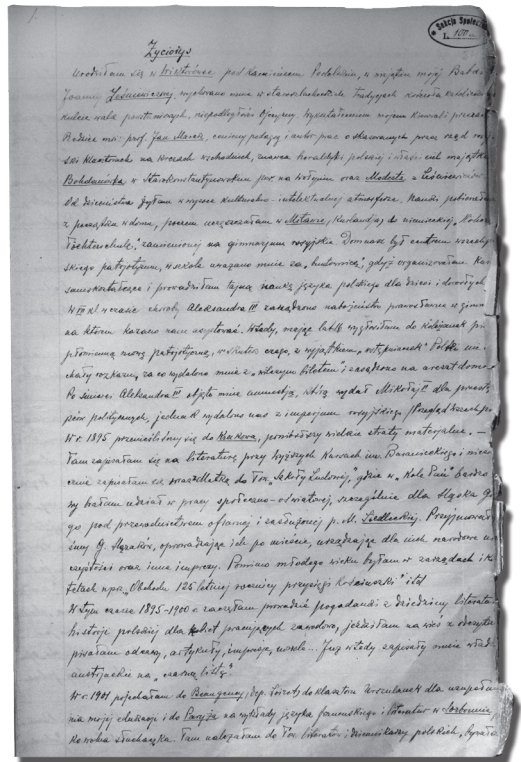 1.
Sekcja Społecz
L. 100
Życiorys
Urodziłam się w pod Kamieńcem Podolskim, w majątku mojej Babci
Joanny wychowano mnie w staroszlacheckich tradycjach kościoła katolickiego
kulcie walk powstańczych, niepodległości Ojczyzny. Wykształceniem mojem kierowali przeważ
Rodzice moi: prof. Jan Marek, ceniony pedagog i autor prac o skasowanych przez rząd
klasztorach na kresach wschodnich, znawca heraldyki polskiej i właściciel majątku
Bohdanówka w Starokonstantynowskim pow. na Wołyniu oraz Modesta z
Od dzieciństwa żyłam w wysoce kulturalno-intelektualnej atmosferze. Nauki pobierałam
z początku w domu, potem uczęszczałam w Mitawie, (Kurlandja) do niemieckiej „Hohere
Töchterschule," zamienionej na gimnazjum rosyjskie. Dom nasz był centrem
patrjotyzmu, w szkole uważano mnie za „buntownicę," gdyż organizowałam
samokształcące i prowadziłam tajną naukę języka polskiego dla dzieci i dorosłych
W kl. w czasie choroby Aleksandra III zarządzono nabożeństwo prawosławne w gimn
na którem kazano nam asystować. Wtedy, mając lat 16 wygłosiłam do koleżanek
płomienną mowę patrjotyczną, wskutek czego, z wyjątkiem Polki nie
rozkazu, za co wydalono mnie z „wilczym biletem" i zasądzono na areszt domo
Po śmierci Aleksandra III objęła mnie amnestja, którą wydał Mikołaj II dla
ców politycznych, jednak wydalono nas z imperjum rosyjskiego,
W r. 1895 przenieśliśmy się do Krakowa, poniósłszy wielkie straty materjalne. —
Tam zapisałam się na literaturę przy Wyższych Kursach im. Baranieckiego i
zapisałam się wraz z Matką do Tow. „Szkoły Ludowej," gdzie w „Kole Pań" bardzo
brałam udział w pracy społeczno-oświatowej, szczególnie dla Śląska G
go pod przewodnictwem ofiarnej i zasłużonej p. M. Siedleckiej. Przyjmowa
śmy G. Ślązaków, oprowadzając ich po mieście, urządzając dla nich narodowe
czystości oraz inne imprezy. Pomimo młodego wieku byłam w zarządach i
tetach np. „Obchodu 125 letniej rocznicy przysięgi Kościuszki" itd
W tym czasie 1895-1900 r. zaczęłam prowadzić pogadanki z dziedziny literatu
historji polskiej dla kobiet pracujących zawodowo, jeździłam na wieś z odczyta
pisałam odezwy, artykuły, impresje, nowele... Już wtedy zapisały mnie władz
austrjackie na „czarną listę".
W r. 1901 pojechałam do Beaugency, (dep. Loiret) do klasztoru Urszulanek dla uzupełni
nia mojej edukacji i do Paryża na wykłady języka francuskiego i literatur w Sorbonnie
ko wolna słuchaczka. Tam należałam do Tow. literatów i dziennikarzy polskich, bywała